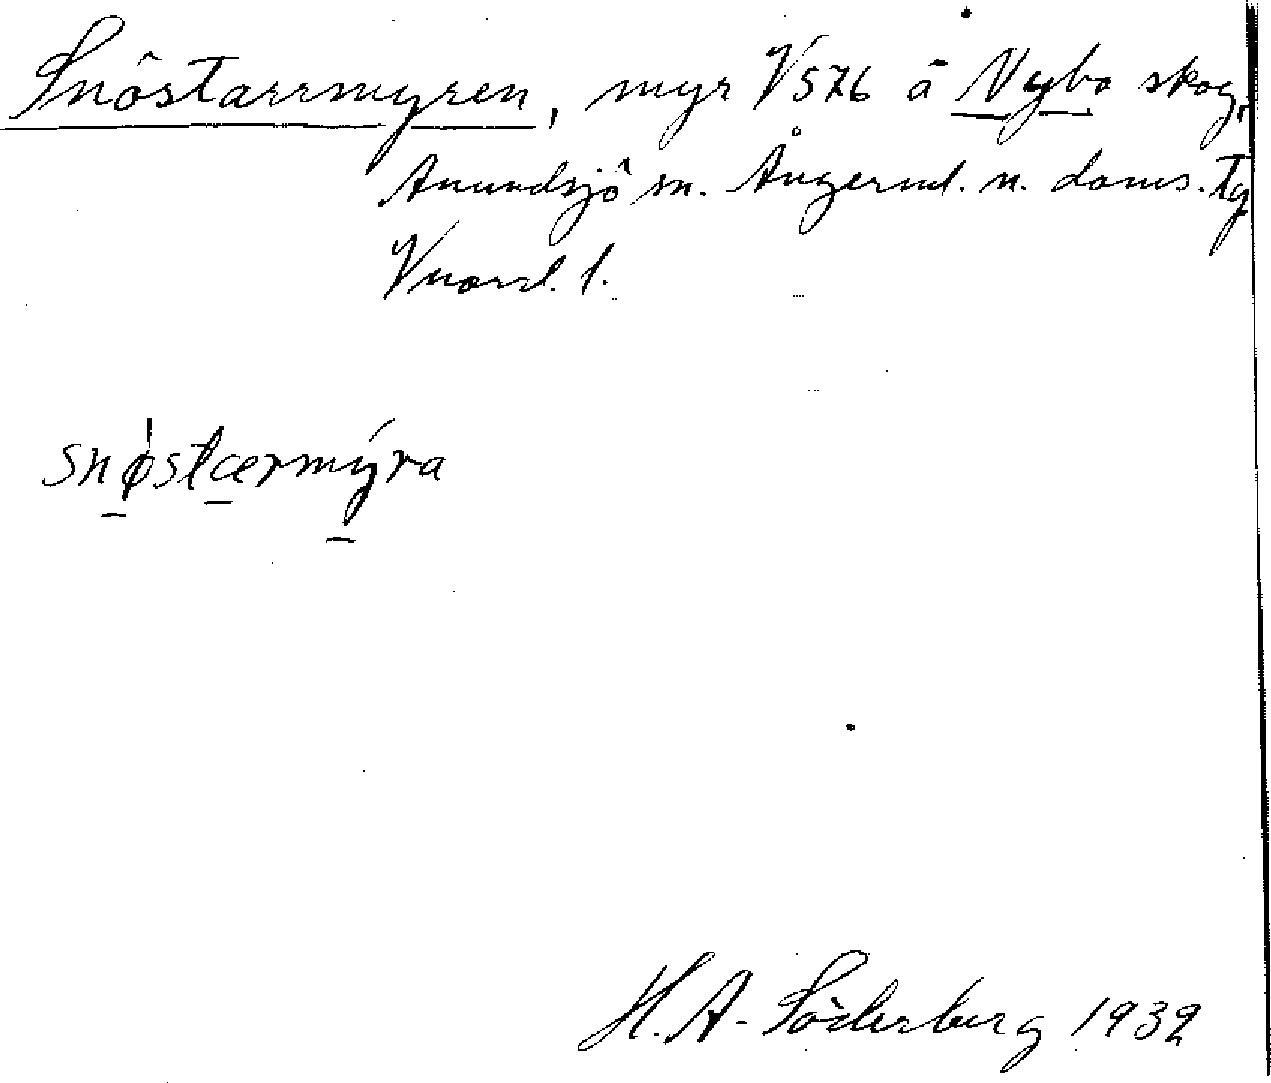 Snöstarrmyren, myr V576 å Nybo skog,
Anundsjö sn. Ångerml. n. doms. Tg
Vnorrl. l.
snøstærmýra
H. A. Söderberg 1932